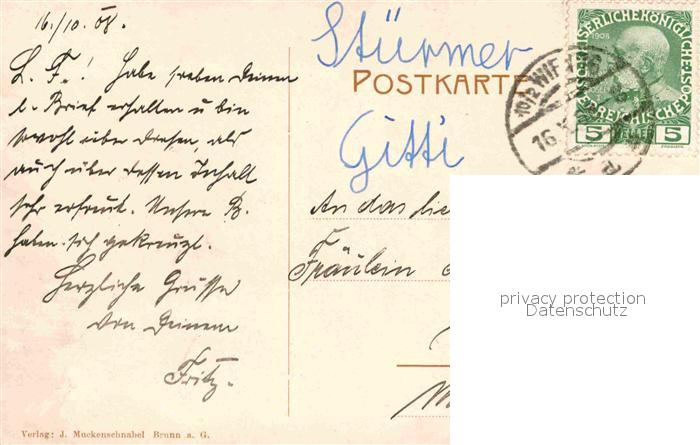 16./10. 08.
L. F.! Habe soeben Deinen
l. Brief erhalten u bin
sowohl über diesen, als
auch über dessen Inhalt
sehr erfreut. Unsere B.
haben sich gekreuzt.
Herzliche Grüsse
von Deinem
Fritz.
Verlag: J. Muckenschnabel Brunn a. G.
Stürmer
POSTKARTE
Gitti
An das lie
Fräulein
1908
5 HELLER 5
10/2 WIEN
16
privacy protection
Datenschutz